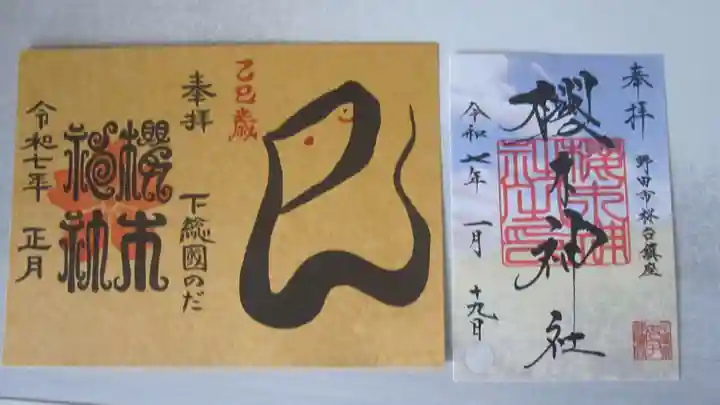 乙巳歳
奉拝
下総國のだ
櫻木
神社
令和七年 正月
奉拝
野田市桜台鎮座
櫻木神社
令和七年 一月 十九日